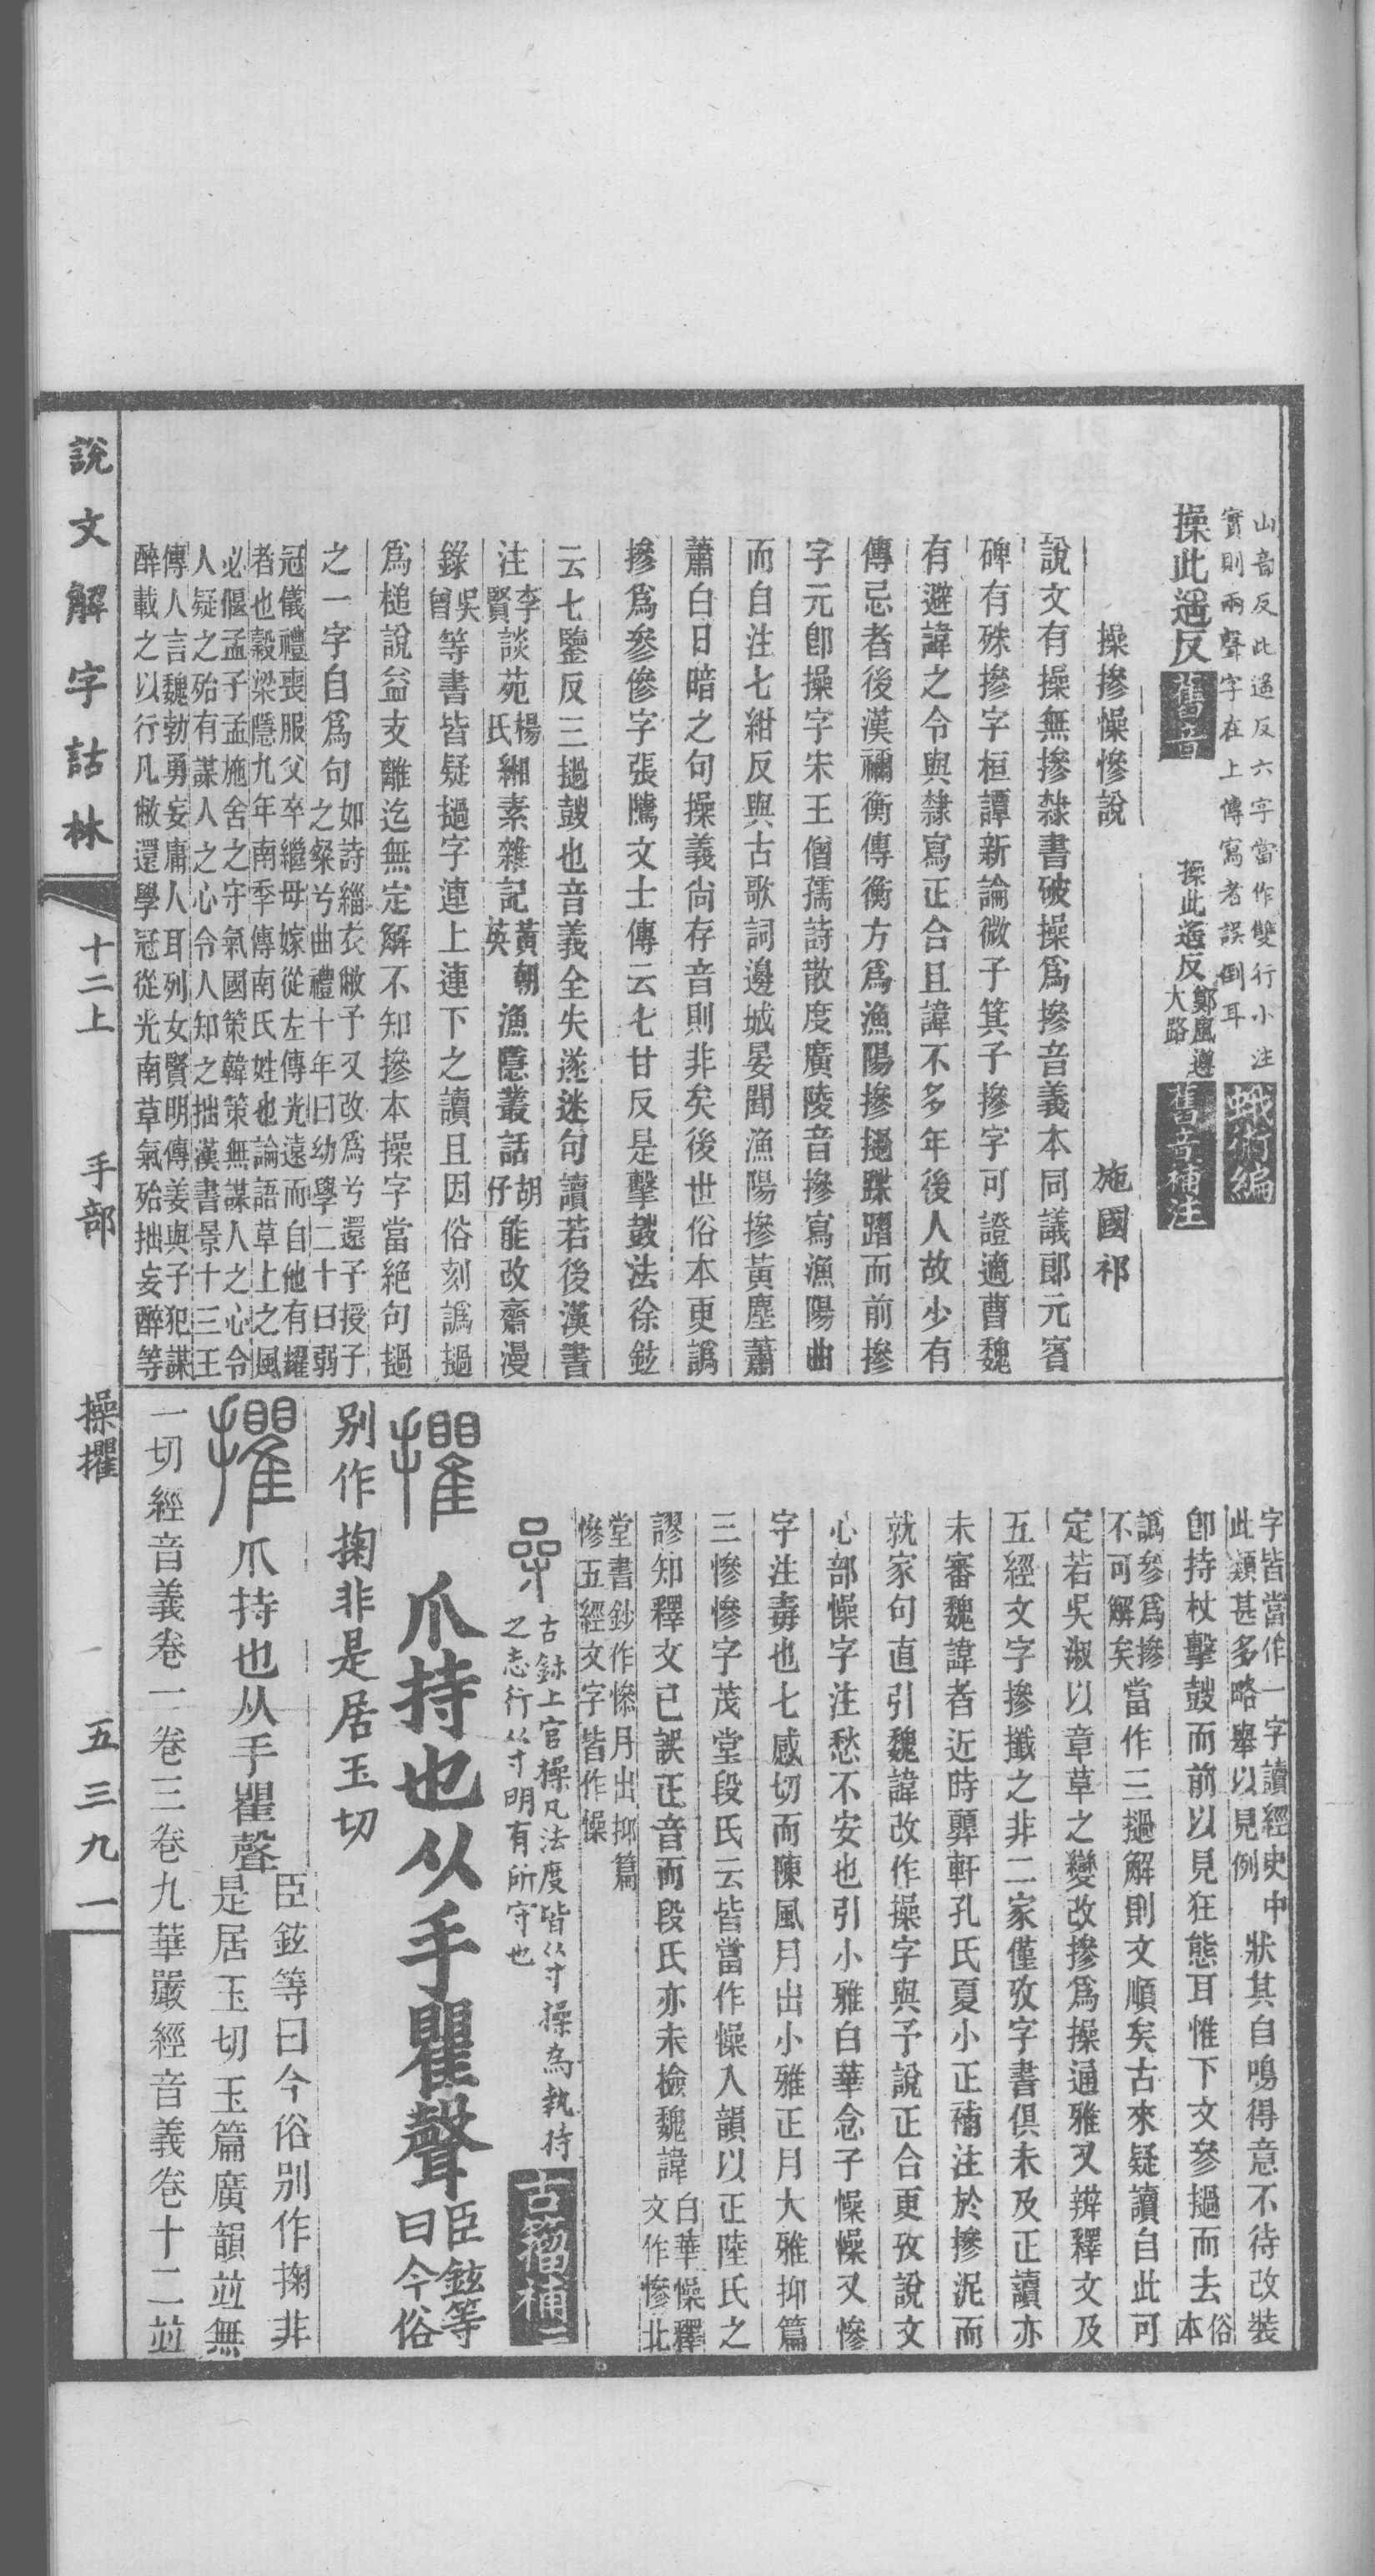 山音反此遥反六字當作雙行小注
實則兩聲字在上傳寫者誤倒耳
蛾術編
操此遥反
舊音
操此遥反
鄭風遵
大路
舊音補注
操摻懆慘說
施國祁
說文有操無摻隸書破操爲摻音義本同議郞元賓
碑有殊摻字桓譚新論微子箕子摻字可證適曹魏
有避諱之令與隸寫正合且諱不多年後人故少有
傳忌者後漢禰衡傳衡方爲漁陽摻撾蹀躧而前摻
字元卽操字宋王僧孺詩散度廣陵音摻寫漁陽曲
而自注七紺反與古歌詞邊城晏聞漁陽摻黃塵蕭
蕭白日暗之句操義尙存音則非矣後世俗本更譌
摻爲參傪字張隲文士傳云七甘反是擊鼓法徐鉉
云七鑒反三撾鼓也音義全失遂迷句讀若後漢書
注李賢談苑楊氏緗素雜記黃朝英漁隱叢話胡仔能改齋漫
錄吳曾等書皆疑撾字連上連下之讀且因俗刻譌撾
爲槌說益支離迄無定解不知摻本操字當絕句撾
之一字自爲句如詩緇衣敝予又改爲兮還予授子
之粲兮曲禮十年曰幼學二十曰弱
冠儀禮喪服父卒繼母嫁從左傳光遠而自他有耀
者也穀梁隱九年南季傳南氏姓也論語草上之風
必偃孟子孟施舍之守氣國策韓策無謀人之心令
人疑之殆有謀人之心令人知之拙漢書景十三王
傳人言魏勃勇妄庸人耳列女賢明傳姜與子犯謀
醉載之以行凡敝還學冠從光南草氣殆拙妄醉等
字皆當作一字讀經史中
此類甚多略舉以見例
狀其自鳴得意不待改裝
卽持杖擊鼓而前以見狂態耳惟下文參撾而去俗本
譌參爲摻
不可解矣
當作三撾解則文順矣古來疑讀自此可
定若吳淑以章草之變改摻爲操通雅又辨釋文及
五經文字摻攕之非二家僅攷字書俱未及正讀亦
未審魏諱者近時顨軒孔氏夏小正補注於摻泥而
就家句直引魏諱改作操字與予說正合更攷說文
心部懆字注愁不安也引小雅白華念子懆懆又慘
字注毒也七感切而陳風月出小雅正月大雅抑篇
三慘慘字茂堂段氏云皆當作懆入韻以正陸氏之
謬知釋文已誤正音而段氏亦未檢魏諱白華懆釋
文作慘北
堂書鈔作慘月出抑篇
慘五經文字皆作懆
古鉥上官操凡法度皆从寸操爲執持
之志行从寸明有所守也
古籀補
爪持也从手瞿聲臣鉉等
曰今俗
別作掬非是居玉切
爪持也从手瞿聲
臣鉉等曰今俗別作掬非
是居玉切玉篇廣韻竝無
一切經音義卷一卷三卷九華嚴經音義卷十二竝
說文解字詁林
十二上
手部
操攫
五三九一